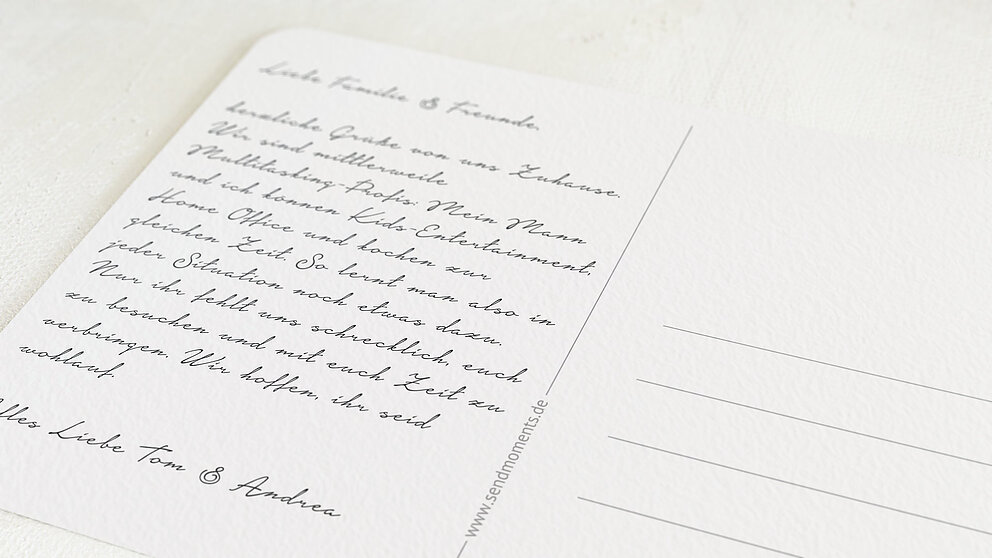 Liebe Familie & Freunde,
herzliche Grüße von uns Zuhause.
Wir sind mittlerweile
Multitasking-Profis: Mein Mann
und ich können Kids-Entertainment,
Home Office und kochen zur
gleichen Zeit. So lernt man also in
jeder Situation noch etwas dazu.
Nur ihr fehlt uns schrecklich, euch
zu besuchen und mit euch Zeit zu
verbringen. Wir hoffen, ihr seid
wohlauf.
Alles Liebe Tom & Andrea
www.sendmoments.de